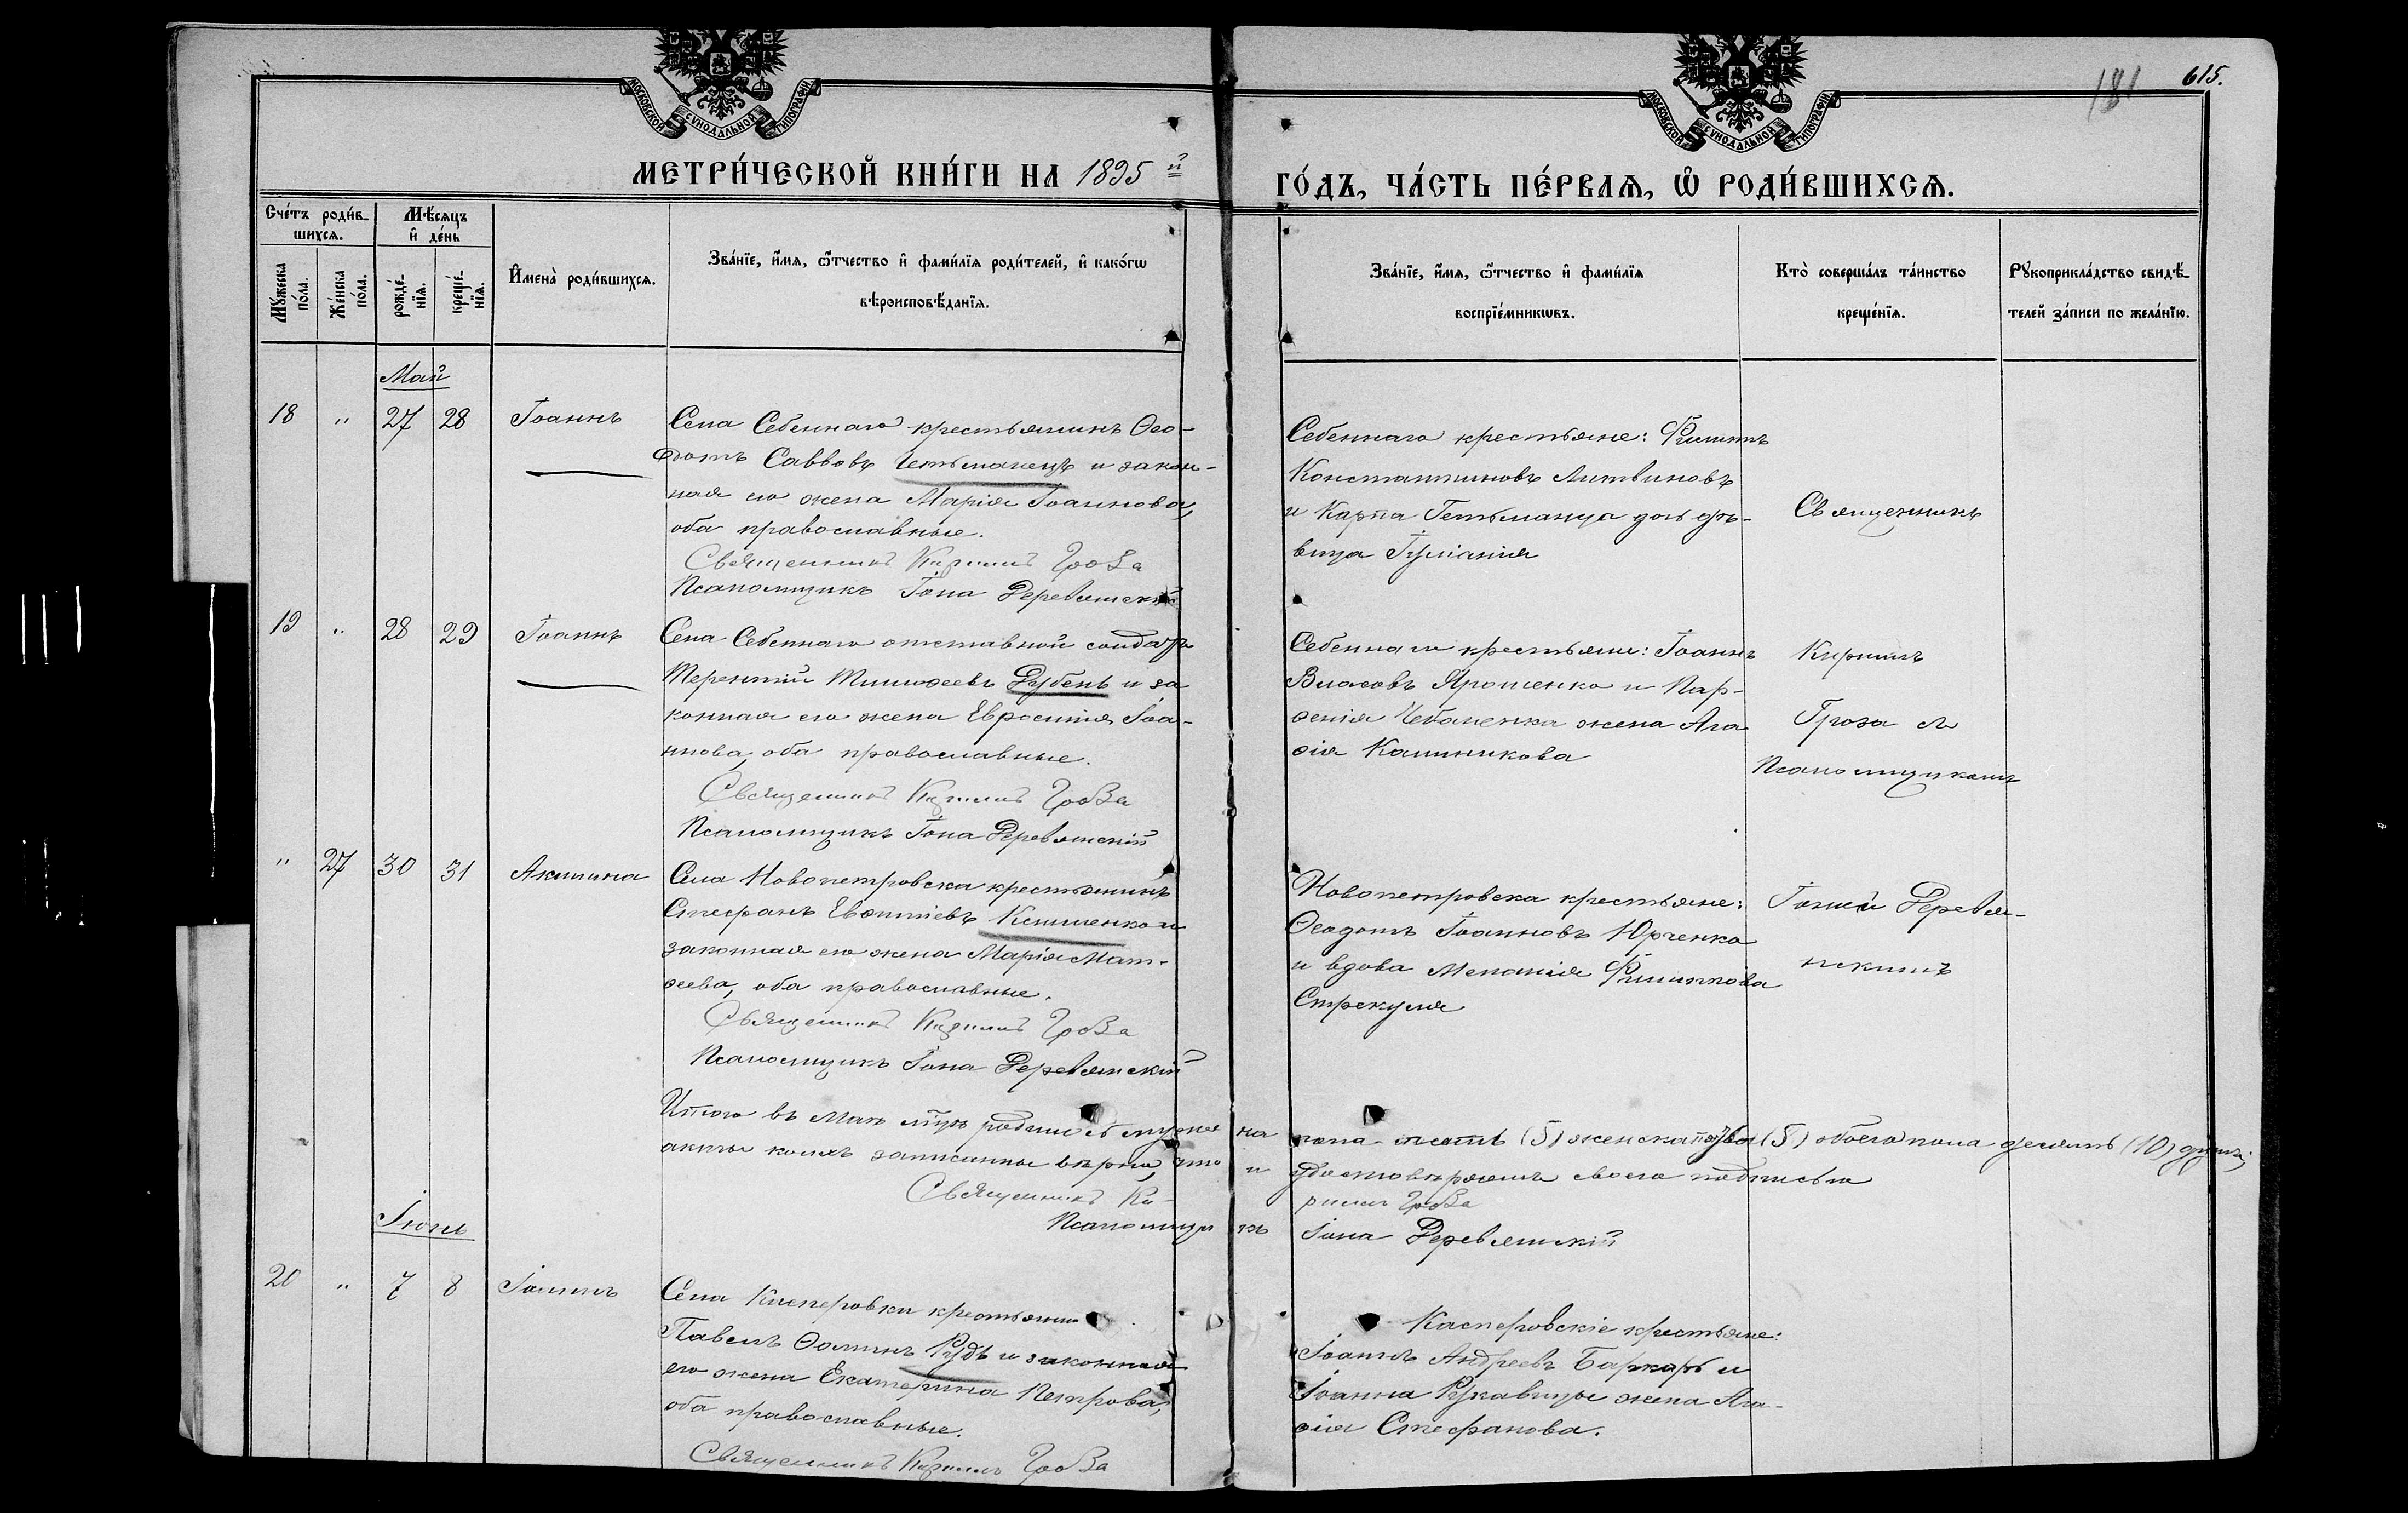 МОСКОВСКОЙ СУНОДАЛЬНОЙ ТИПОГРАФІИ
МОСКОВСКОЙ СУНОДАЛЬНОЙ ТИПОГРАФІИ
181 615.
МЕТРИ́ЧЕСКОЙ КНИ́ГИ НА 1895 й
ГО́ДЪ, ЧА́СТЬ ПЕ́РВАѦ, Ѿ РОДИ́ВШИХСѦ.
Сче́тъ роди́в-
шихсѧ.
Мѣ́сѧцъ
и҆ де́нь
Мꙋ́жеска
по́ла.
Же́нска
по́ла.
рожде́-
нїѧ.
креще́-
нїѧ.
И҆мена̀ роди́вшихсѧ.
Зва́нїе, и҆́мѧ, ѻ҆́тчество и҆ фами́лїѧ роди́телей, и҆ како́гѡ
вѣроисповѣ́данїѧ.
Зва́нїе, и҆́мѧ, ѻ҆́тчество и҆ фами́лїѧ
воспрїе́мникѡвъ.
Кто̀ соверша́лъ та́инство
креще́нїѧ.
Рꙋкоприкла́дство свидѣ́-
телей за́писи по жела́нїю.
Май
18 " 27 28 Іоаннъ
Села Себеннаго крестьянинъ Ѳео-
дотъ Саввовъ Гетьманецъ и закон-
ная его жена Марія Іоаннова,
оба православные.
Священникъ Кириллъ Гроза
Псаломщикъ Іона Деревянскій
Себеннаго крестьяне: Филиппъ
Константиновъ Литвиновъ
и Карпа Гетьманца дочь дѣ-
вица Іуліанія
Священникъ
19 " 28 29 Іоаннъ
Села Себеннаго отставной солдатъ
Терентій Тимоѳеевъ Дубень и за
конная его жена Евросинія Іоа-
ннова, оба православные.
Священникъ Кириллъ Гроза
Псаломщикъ Іона Деревянскій
Себеннаго крестьяне: Іоаннъ
Власовъ Ярошенко и Пар-
ѳенія Чебаненка жена Ага
ѳія Калиникова
Кириллъ
Гроза съ
Псаломщикомъ
" 27 30 31 Акилина
Села Новопетровска крестьянинъ
Стефанъ Евѳиміевъ и
законная его жена Марія Мат-
ѳеева, оба православные.
Священникъ Кириллъ Гроза
Псаломщикъ Іона Деревянскій
Новопетровска крестьяне:
Ѳеодотъ Іоанновъ Юрченко
и вдова Меланія Филиппова
Стрекуля
Іоной Деревян-
нскимъ
Итого въ маѣ м-цѣ родилось мужеска пола пять (5) женска пять (5) обоего пола десять (10) душъ;
акты коихъ записанны вѣрно, что и удостовѣряемъ своею подписью
Священникъ Кириллъ Гроза
Псаломщикъ Іона Деревянскій
Іюнь
20 " 7 8 Іоаннъ
Села Касперовки крестьянинъ
Павелъ Ѳоминъ Рудь и законная
его жена Екатерина Петрова,
оба православные.
Священникъ Кириллъ Гроза
Касперовскіе крестьяне:
Іоаннъ Андреевъ Баркарь и
Іоанна Рукавицы жена Ага-
ѳія Стефанова.